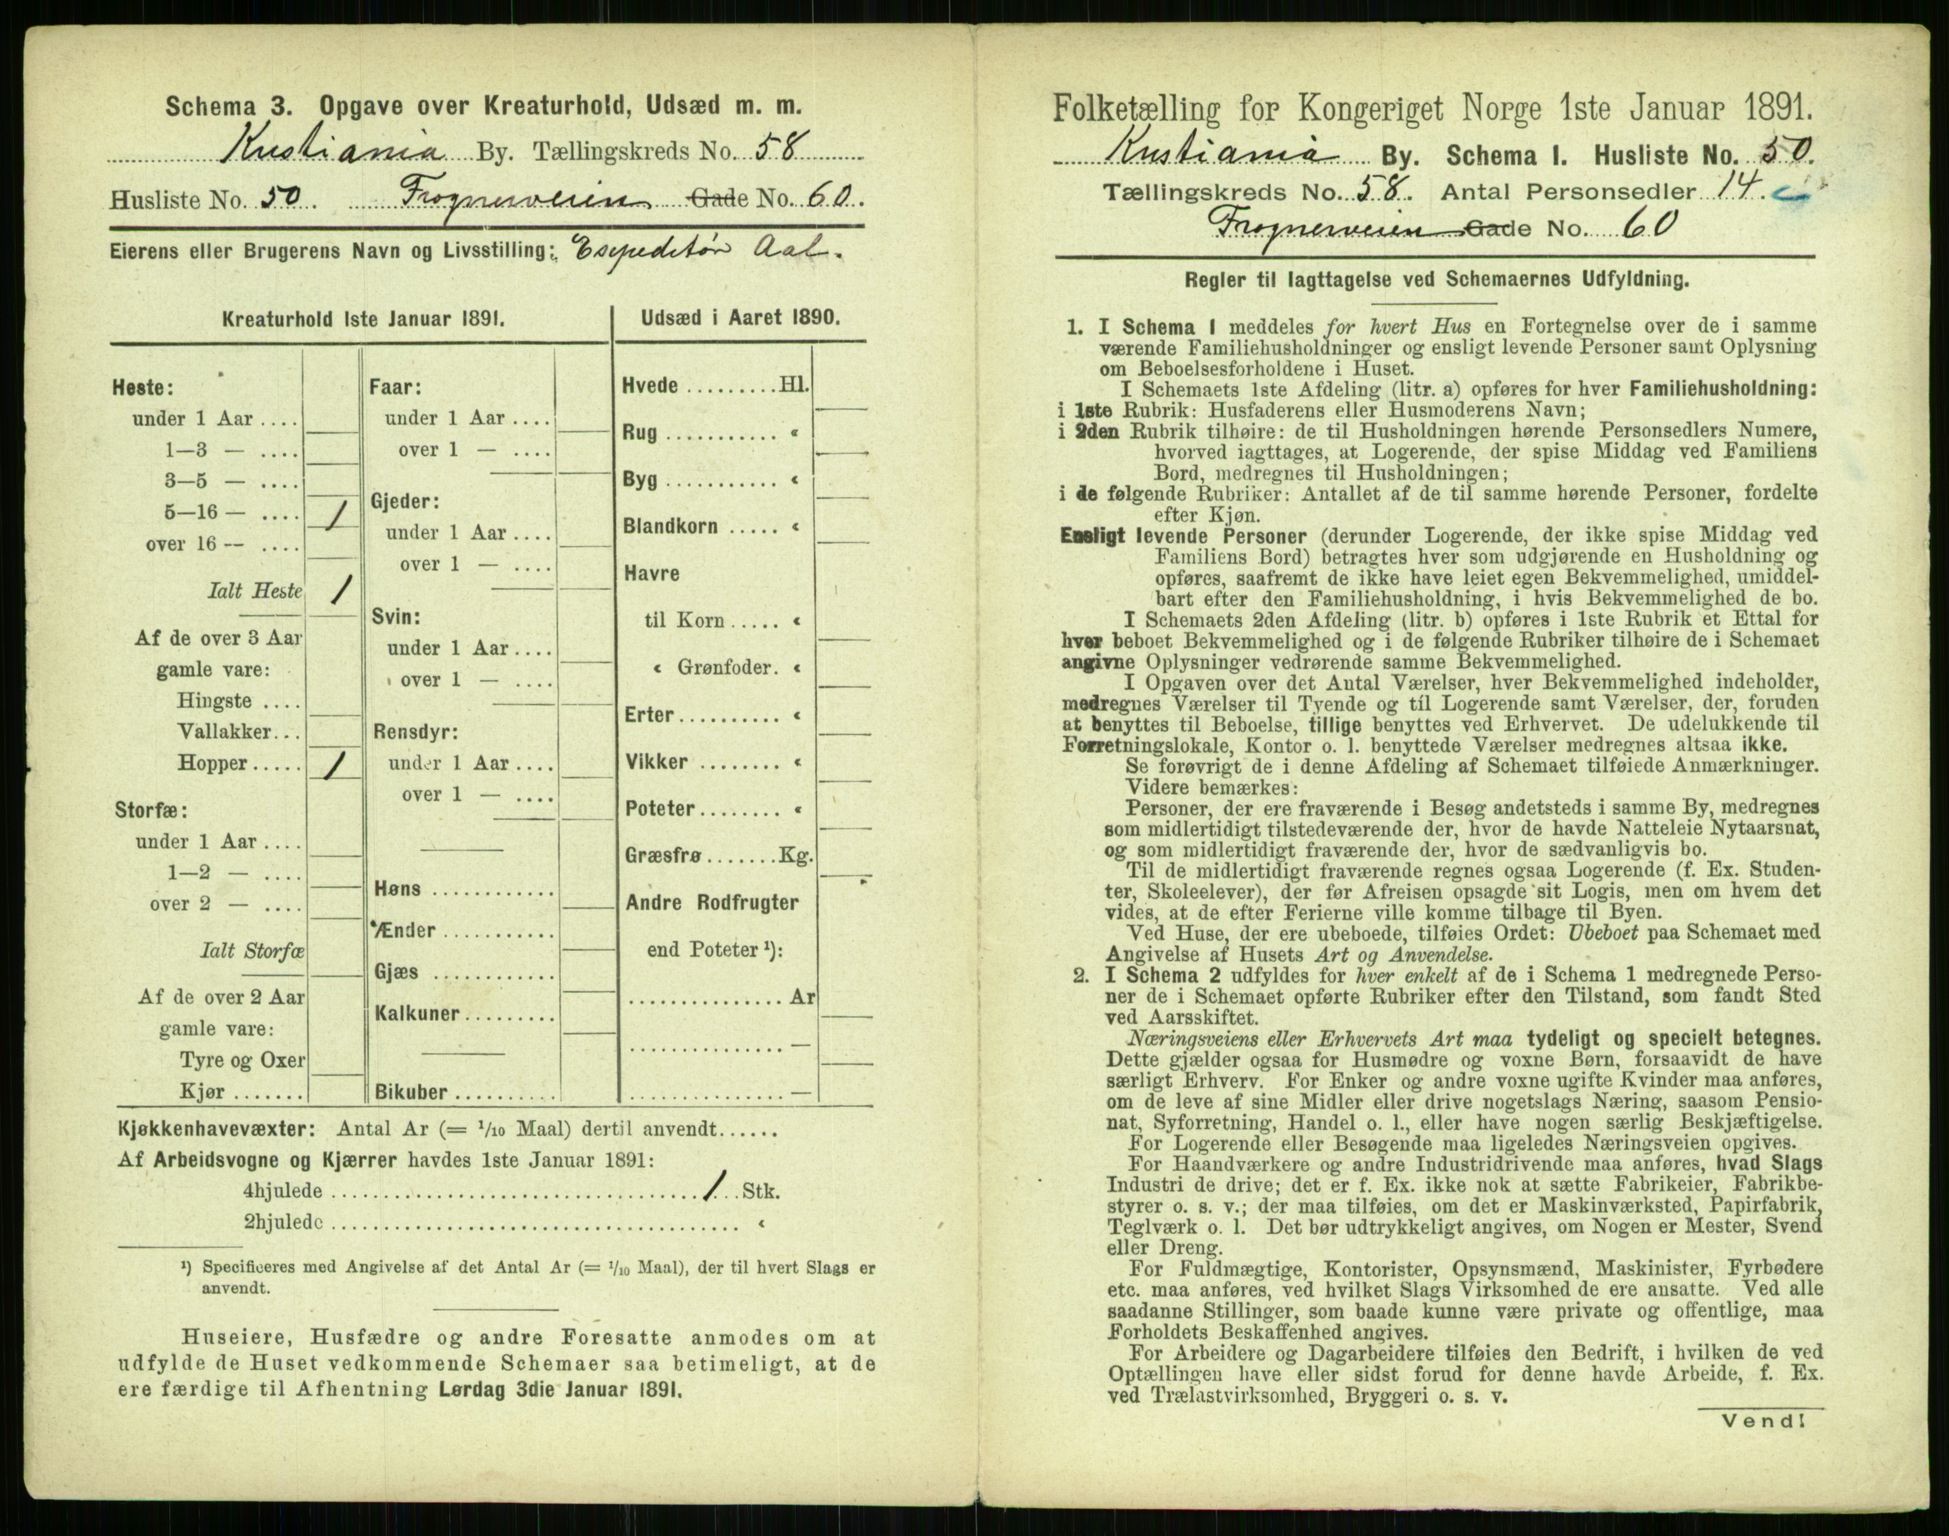 Schema 3. Opgave over Kreaturhold, Udsæd m. m.
Kristiania By. Tællingskreds No. 58
Husliste No. 50. Frognerveien Gade No. 60.
Eierens eller Brugerens Navn og Livsstilling: Expeditør Aal.
Kreaturhold 1ste Januar 1891.
Heste:
under 1 Aar ....
1—3 — ....
3—5 — ....
5—16 — .... 1
over 16 — ....
Ialt Heste 1
Af de over 3 Aar
gamle vare:
Hingste ....
Vallakker...
Hopper..... 1
Storfæ:
under 1 Aar ....
1—2 — ....
over 2 — ....
Ialt Storfæ
Af de over 2 Aar
gamle vare:
Tyre og Oxer
Kjør .......
Faar:
under 1 Aar ....
over 1 — ....
Gjeder:
under 1 Aar ....
over 1 — ....
Svin:
under 1 Aar ....
over 1 — ....
Rensdyr:
under 1 Aar ....
over 1 — ....
Høns ............
Ænder ...........
Gjæs ............
Kalkuner.........
Bikuber ..........
Udsæd i Aaret 1890.
Hvede .........Hl.
Rug ........... «
Byg ........... «
Blandkorn ..... «
Havre
til Korn ..... «
« Grønfoder. «
Erter.......... «
Vikker ........ «
Poteter ........ «
Græsfrø .......Kg.
Andre Rodfrugter
end Poteter ¹):
............... Ar
............... —
............... —
Kjøkkenhavevæxter: Antal Ar (= 1/10 Maal) dertil anvendt......
Af Arbeidsvogne og Kjærrer havdes 1ste Januar 1891:
4hjulede .................................... 1 Stk.
2hjulede ........................................ «
¹) Specificeres med Angivelse af det Antal Ar (= 1/10 Maal), der til hvert Slags er
anvendt.
Huseiere, Husfædre og andre Foresatte anmodes om at
udfylde de Huset vedkommende Schemaer saa betimeligt, at de
ere færdige til Afhentning Lørdag 3die Januar 1891.
Folketælling for Kongeriget Norge 1ste Januar 1891.
Kristiania By. Schema 1. Husliste No. 50.
Tællingskreds No. 58. Antal Personsedler 14.
Frognerveien Gade No. 60
Regler til Iagttagelse ved Schemaernes Udfyldning.
1. I Schema 1 meddeles for hvert Hus en Fortegnelse over de i samme
værende Familiehusholdninger og ensligt levende Personer samt Oplysning
om Beboelsesforholdene i Huset.
I Schemaets 1ste Afdeling (litr. a) opføres for hver Familiehusholdning:
i 1ste Rubrik: Husfaderens eller Husmoderens Navn;
i 2den Rubrik tilhøire: de til Husholdningen hørende Personsedlers Numere,
hvorved iagttages, at Logerende, der spise Middag ved Familiens
Bord, medregnes til Husholdningen;
i de følgende Rubriker: Antallet af de til samme hørende Personer, fordelte
efter Kjøn.
Ensligt levende Personer (derunder Logerende, der ikke spise Middag ved
Familiens Bord) betragtes hver som udgjørende en Husholdning og
opføres, saafremt de ikke have leiet egen Bekvemmelighed, umiddel-
bart efter den Familiehusholdning, i hvis Bekvemmelighed de bo.
I Schemaets 2den Afdeling (litr. b) opføres i 1ste Rubrik et Ettal for
hver beboet Bekvemmelighed og i de følgende Rubriker tilhøire de i Schemaet
angivne Oplysninger vedrørende samme Bekvemmelighed.
I Opgaven over det Antal Værelser, hver Bekvemmelighed indeholder,
medregnes Værelser til Tyende og til Logerende samt Værelser, der, foruden
at benyttes til Beboelse, tillige benyttes ved Erhvervet. De udelukkende til
Forretningslokale, Kontor o. l. benyttede Værelser medregnes altsaa ikke.
Se forøvrigt de i denne Afdeling af Schemaet tilføiede Anmærkninger.
Videre bemærkes:
Personer, der ere fraværende i Besøg andetsteds i samme By, medregnes
som midlertidigt tilstedeværende der, hvor de havde Natteleie Nytaarsnat,
og som midlertidigt fraværende der, hvor de sædvanligvis bo.
Til de midlertidigt fraværende regnes ogsaa Logerende (f. Ex. Studen-
ter, Skoleelever), der før Afreisen opsagde sit Logis, men om hvem det
vides, at de efter Ferierne ville komme tilbage til Byen.
Ved Huse, der ere ubeboede, tilføies Ordet: Ubeboet paa Schemaet med
Angivelse af Husets Art og Anvendelse.
2. I Schema 2 udfyldes for hver enkelt af de i Schema 1 medregnede Perso-
ner de i Schemaet opførte Rubriker efter den Tilstand, som fandt Sted
ved Aarsskiftet.
Næringsveiens eller Erhvervets Art maa tydeligt og specielt betegnes.
Dette gjælder ogsaa for Husmødre og voxne Børn, forsaavidt de have
særligt Erhverv. For Enker og andre voxne ugifte Kvinder maa anføres,
om de leve af sine Midler eller drive nogetslags Næring, saasom Pensio-
nat, Syforretning, Handel o. l., eller have nogen særlig Beskjæftigelse.
For Logerende eller Besøgende maa ligeledes Næringsveien opgives.
For Haandværkere og andre Industridrivende maa anføres, hvad Slags
Industri de drive; det er f. Ex. ikke nok at sætte Fabrikeier, Fabrikbe-
styrer o. s. v.; der maa tilføies, om det er Maskinværksted, Papirfabrik,
Teglværk o. l. Det bør udtrykkeligt angives, om Nogen er Mester, Svend
eller Dreng.
For Fuldmægtige, Kontorister, Opsynsmænd, Maskinister, Fyrbødere
etc. maa anføres, ved hvilket Slags Virksomhed de ere ansatte. Ved alle
saadanne Stillinger, som baade kunne være private og offentlige, maa
Forholdets Beskaffenhed angives.
For Arbeidere og Dagarbeidere tilføies den Bedrift, i hvilken de ved
Optællingen have eller sidst forud for denne havde Arbeide, f. Ex.
ved Trælastvirksomhed, Bryggeri o. s. v.
Vend!